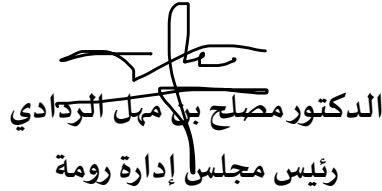 الدكتور مصلح بن مهل الردادي
رئيس مجلس إدارة رومة